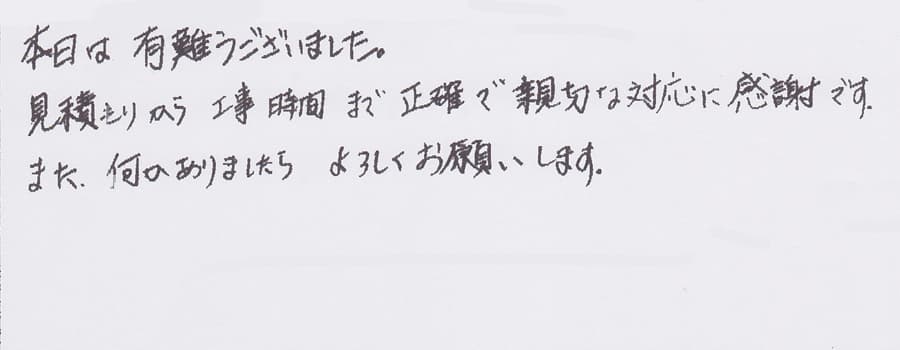 本日は 有難うございました。
見積もりから 工事時間 まで 正確で 親切な対応に 感謝です.
また、何かありましたら よろしくお願いします.